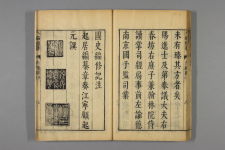 未有臻其方者矣
賜進士及第奉議大夫右
春坊右庶子兼翰林院侍
讀掌司經局事前左諭德
南京國子監司業
國史編修記注
起居編纂章奏江寧顧起
元譔